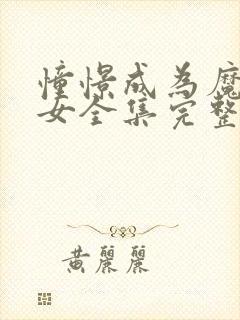 憧憬成为魔
女全集完整
黄丽丽